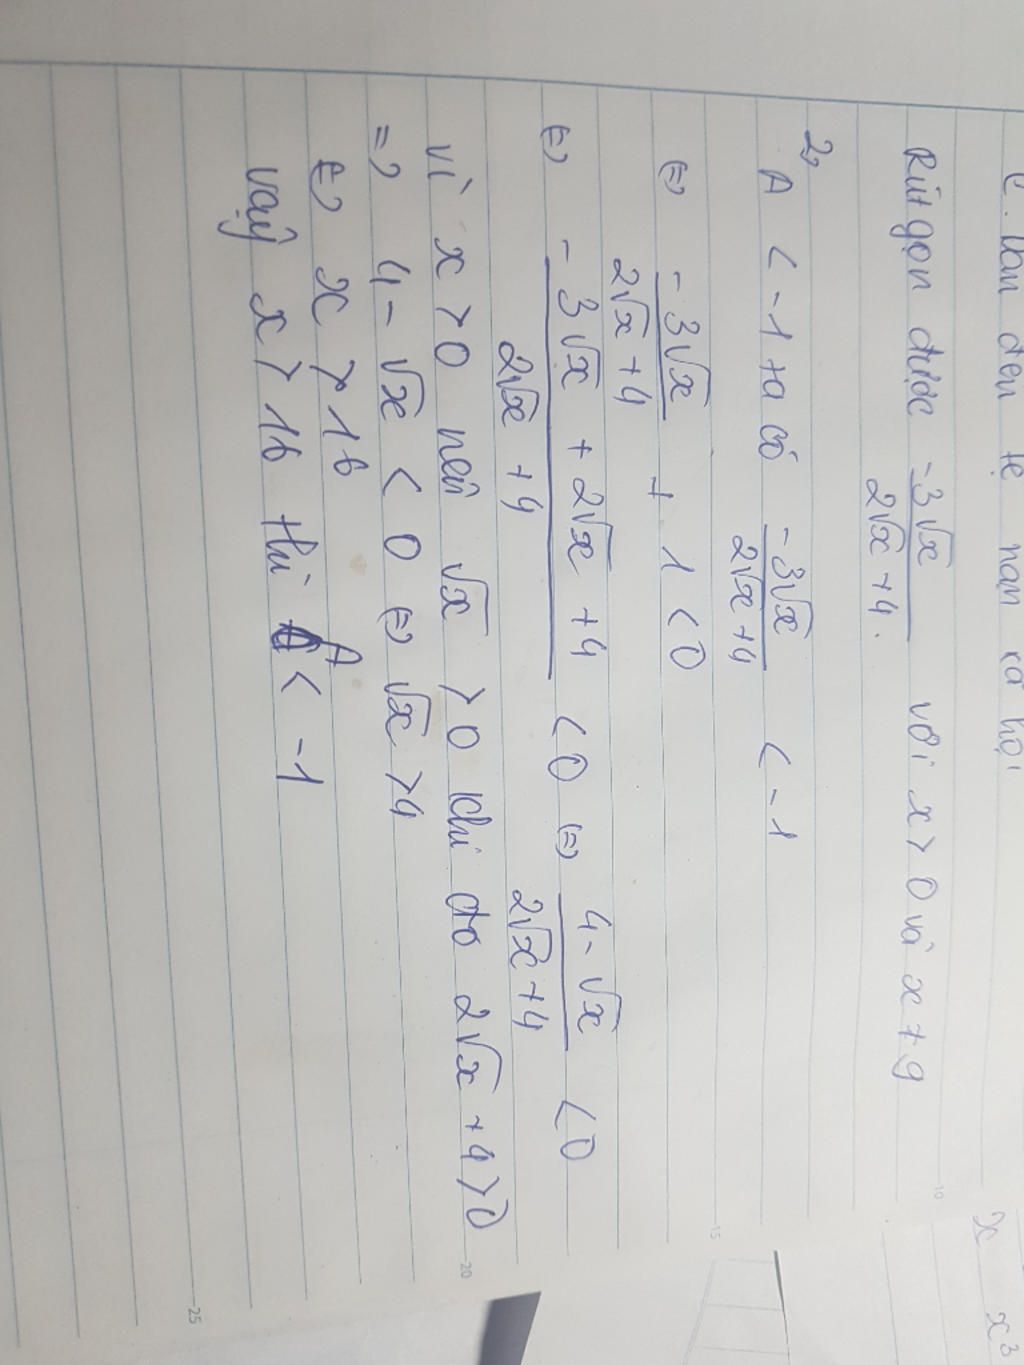 C. Dẫn đến tệ nạn xã hội
Rút gọn được -3√x / 2√x + 4. với x > 0 và x ≠ 9
2,
A < -1 ta có -3√x / 2√x + 4 < -1
(=) -3√x / 2√x + 4 + 1 < 0
(=) -3√x + 2√x + 4 / 2√x + 4 < 0 (=) 4 - √x / 2√x + 4 < 0
Vì x > 0 nên √x > 0 khi đó 2√x + 4 > 0
=) 4 - √x < 0 (=) √x > 4
(=) x > 16
Vậy x > 16 thì A < -1
x x³
10
15
20
25